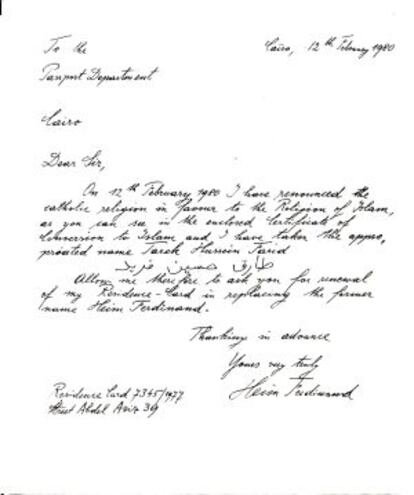 To the
Cairo, 12th February 1980
Passport Department
Cairo
Dear Sir,
On 12th February 1980 I have renounced the
catholic religion in favour to the Religion of Islam,
as you can see in the enclosed Certificate of
Conversion to Islam and I have taken the appro,
priated name Tarek Hussein Farid
طارق حسين فريد
Allow me therefore to ask you for renewal
of my Residence-Card in replacing the former
name Heim Ferdinand.
Thanking in advance
Yours very truly
Heim Ferdinand
Residence Card 7345/1977
Street Abdel Aziz 39